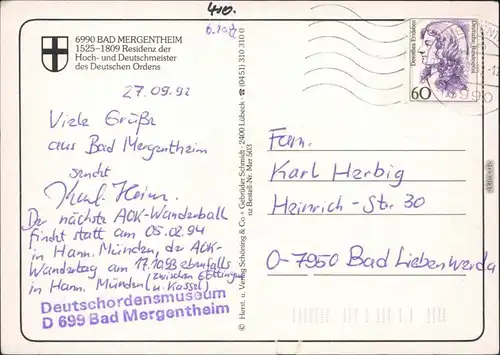 410.
6990 BAD MERGENTHEIM
1525–1809 Residenz der
Hoch- und Deutschmeister
des Deutschen Ordens
27.09.92
Viele Grüße
aus Bad Mergentheim
sendet
Karl-Heinz.
Der nächste AOK-Wanderball
findet statt am 05.02.94
in Hann. Münden, der AOK-
Wandertag am 17.10.93 ebenfalls
in Hann. Münden (zwischen Göttingen
u. Kassel)
Deutschordensmuseum
D 699 Bad Mergentheim
© Herst. u. Verlag Schöning & Co + Gebrüder Schmidt · 2400 Lübeck · ☎ (0451) 310 310 0
nz Bestell-Nr. Mer 503
Dorothea Erxleben
Deutsche Bundespost
60
Fam.
Karl Herbig
Heinrich-Str. 30
O-7950 Bad Liebenwerda